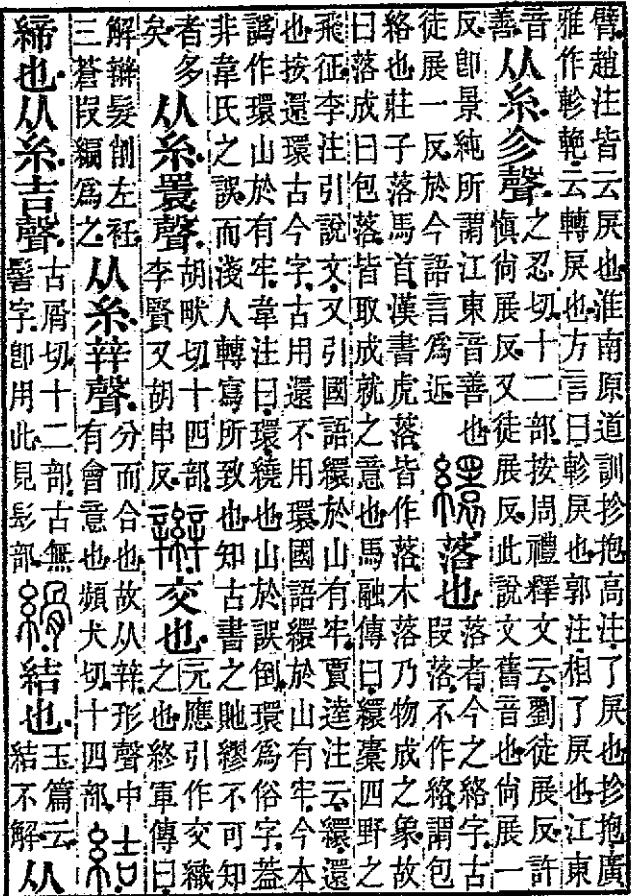 臂趙注皆云戾也淮南原道訓抮抱高注了戾也抮抱廣
雅作軫軳云轉戾也方言曰軫戾也郭注相了戾也江東
音善从糸㐱聲之忍切十二部按周禮釋文云劉徒展反許愼尙展反又徒展反此說文舊音也尙展一
反卽景純所謂江東音善也徒展一反於今語言爲近繯落也落者今之絡字古叚落不作絡謂包
絡也莊子落馬首漢書虎落皆作落木落乃物成之象故
曰落成曰包落皆取成就之意也馬融傳曰繯橐四野之
飛征李注引說文又引國語繯於山有牢賈逵注云繯還
也按還環古今字古用還不用環國語繯於山有牢今本
譌作環山於有牢韋注曰環繞也山於誤倒環爲俗字葢
非韋氏之誤而淺人轉寫所致也知古書之貤繆不可知
者多矣从糸瞏聲胡畎切十四部李賢又胡串反辮交也元應引作交織之也終軍傳曰
解辮髮削左衽三蒼叚編爲之从糸辡聲分而合也故从辡形聲中有會意也頻犬切十四部結
締也从糸吉聲古屑切十二部古無髻字卽用此見髟部縎結也玉篇云結不解从